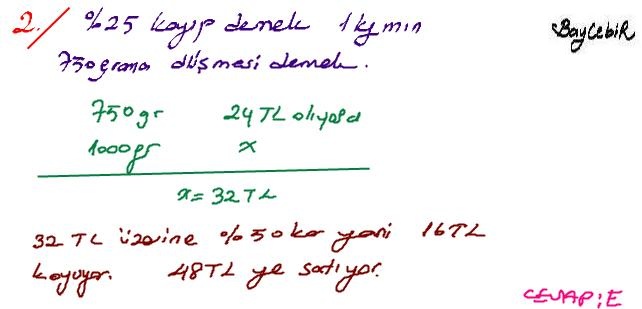 2./ %25 kayıp demek 1kg mın
BayCebiR
750grama düşmesi demek.
750gr 24TL oluyorsa
1000gr x
x=32TL
32 TL üzerine %50 kar yani 16TL
koyuyor. 48TL ye satıyor.
CEVAP:E